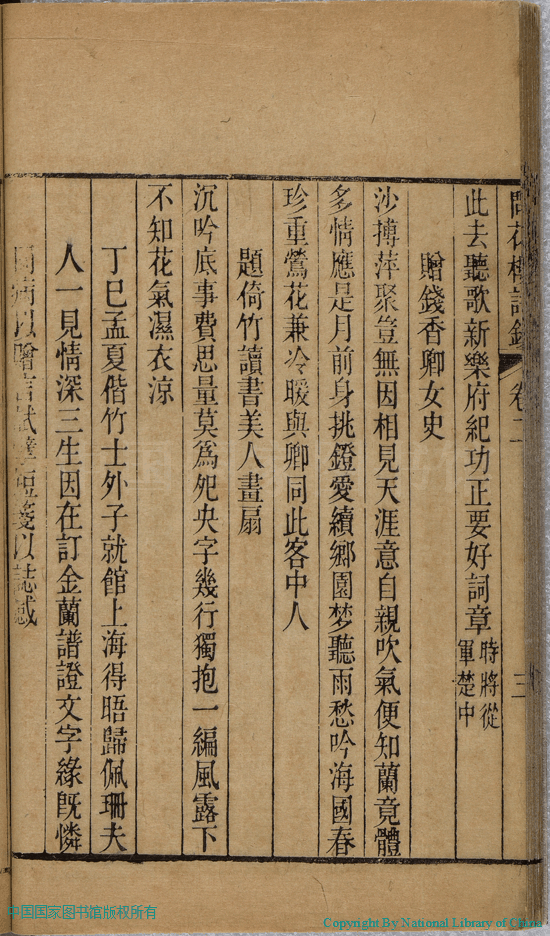 問花樓詩鈔 卷二 三
此去聽歌新樂府紀功正要好詞章時將從軍楚中
贈錢香卿女史
沙摶萍聚豈無因相見天涯意自親吹氣便知蘭竟體
多情應是月前身挑鐙愛續鄉園梦聽雨愁吟海國春
珍重鶯花兼冷暖與卿同此客中人
題倚竹讀書美人畫扇
沉吟底事費思量莫為夗央字幾行獨抱一編風露下
不知花氣濕衣涼
丁巳孟夏偕竹士外子就館上海得晤歸佩珊夫
人一見情深三生因在訂金蘭譜證文字緣旣憐
同病以贈言拭短箋以誌感
中国国家图书馆版权所有
Copyright By National Library of China